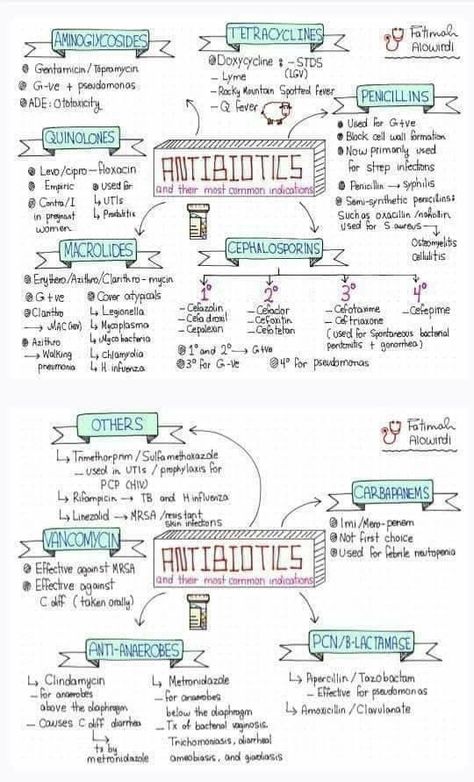 AMINOGLYCOSIDES
Gentamicin / Topramycin
G-ve + pseudomonas
ADE: Ototoxicity
TETRACYCLINES
Doxycycline : - STDS
(LGV)
- Lyme
- Rocky Mountain Spotted fever
- Q fever
Fatimah
Alowirdi
PENICILLINS
Used for G+ve
Block cell wall formation
Now primarily used
for strep infections
Penicillin → syphilis
Semi-synthetic penicillins:
Such as oxacillin /nafcillin
used for S aureus →
Osteomyelitis
Cellulitis
QUINOLONES
Levo/cipro - floxacin
Empiric
Used for
↳ UTIs
↳ Prostatitis
Contra/I
in pregnant
women
ANTIBIOTICS
and their most common indications
MACROLIDES
Erythero/Azithro/Clarithro - mycin
G+ve
Cover atypicals
↳ Legonella
↳ Mycoplasma
↳ Mycobacteria
↳ Chlamydia
↳ H influenza
Clarithro
→ MAC (HIV)
Azithro
→ Walking
pneumonia
CEPHALOSPORINS
1°
- Cefazolin
- Cefadroxil
- Cepalexin
2°
- Cefaclor
- Cefoxitin
- Cefotetan
3°
- Cefotaxime
- Ceftriaxone
(used for Spontaneous bacterial
peritonitis + gonorrhea)
4°
- Cefepime
1° and 2° → G+ve
3° for G-ve
4° for pseudomonas
OTHERS
↳ Trimethorprim / Sulfamethoxazole
- used in UTIs / prophylaxis for
PCP (HIV)
↳ Rifampicin → TB and H influenza
↳ Linezolid → MRSA /resistant
skin infections
Fatimah
Alowirdi
CARBAPANEMS
Imi/Mero-penem
Not first choice
Used for febrile neutopenia
VANCOMYCIN
Effective against MRSA
Effective against
C diff (taken orally)
ANTIBIOTICS
and their most common indications
ANTI-ANAEROBES
↳ Clindamycin
- for anaerobes
above the diaphragm
- Causes C diff diarrhea
↳ tx by
metronidazole
↳ Metronidazole
- for anaerobes
below the diaphragm
- Tx of bacterial vaginosis,
Trichomoniasis, diarrheal
ameobiasis, and giardiasis
PCN/B-LACTAMASE
↳ Apercillin / Tazobactam
- Effective for pseudomonas
↳ Amoxicillin / Clavulanate